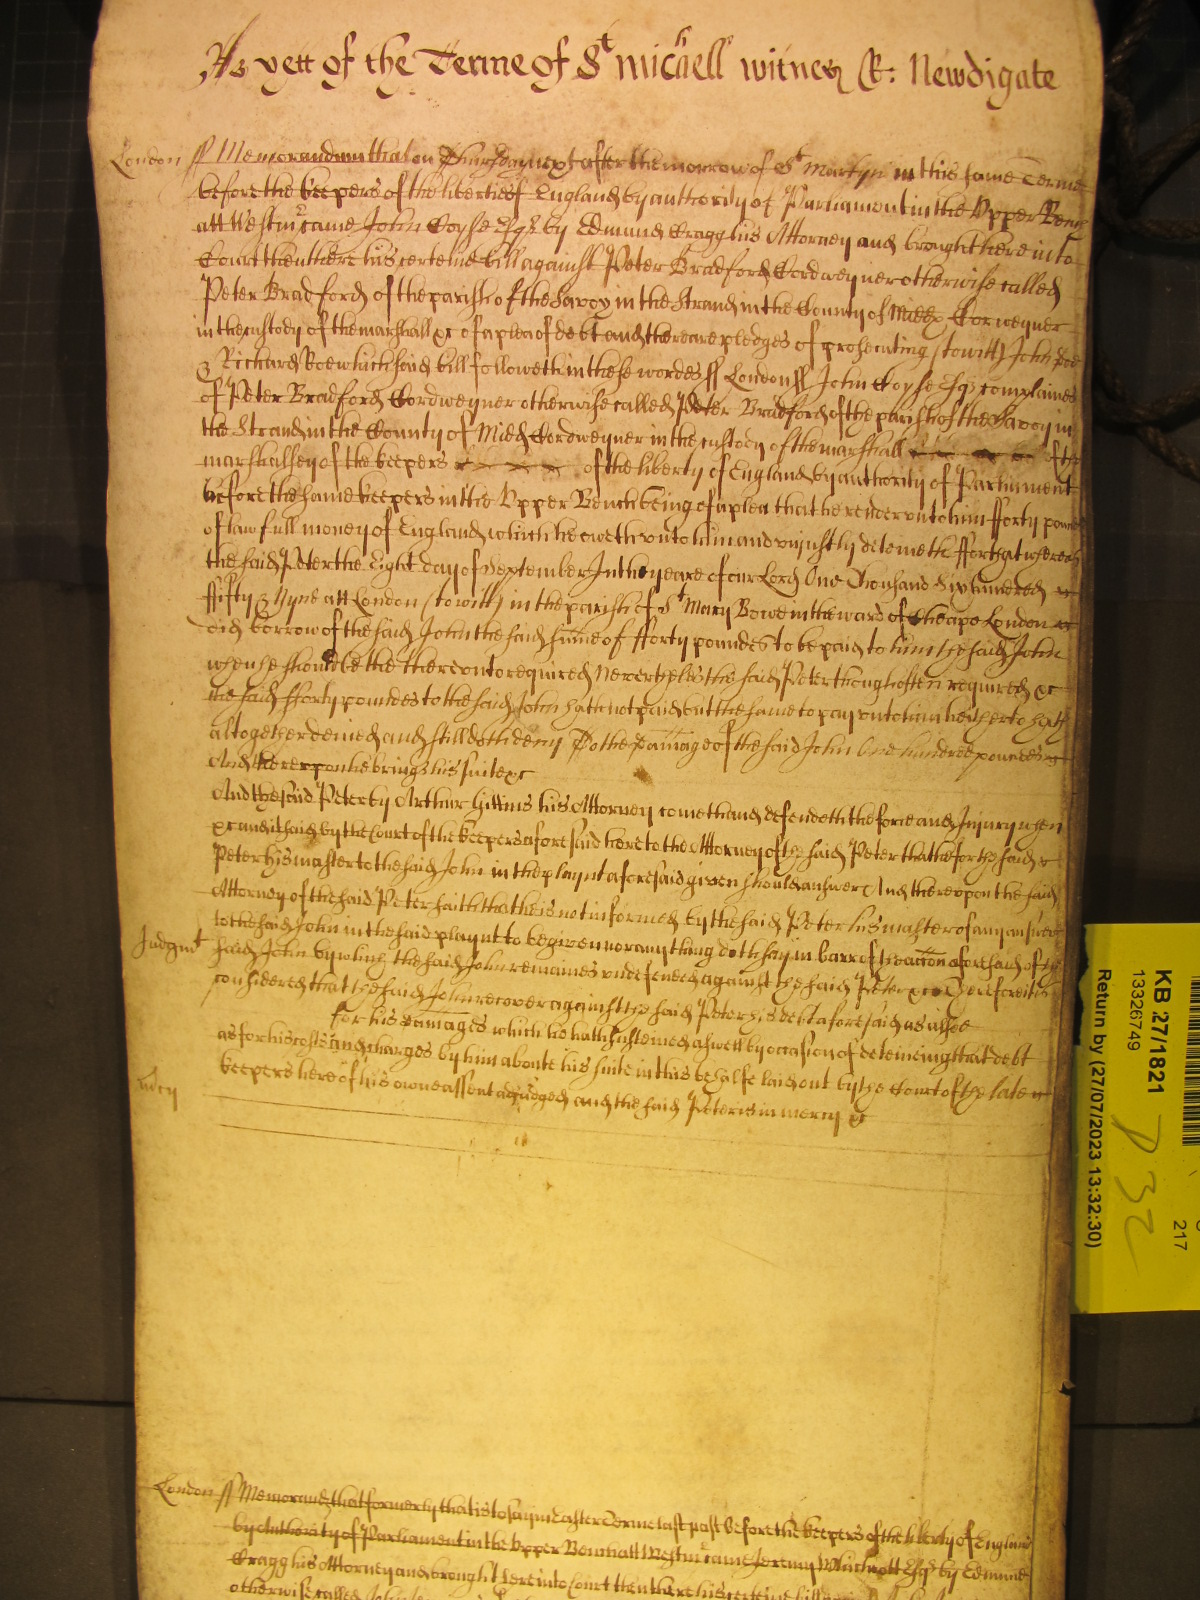 As yett of the Terme of St Michaell witnes R: Newdigate
London ss Memorandum that on Thursday next after the morrow of St Martyn in this same Terme
before the keepers of the libertie of England by authority of Parliament in the Upper Bench
att Westmr came John Coyse Esqr by Edmund Cragg his Attorney and brought here into
Court then there his certeine bill against Peter Bradford Cordweyner otherwise called
Peter Bradford of the parish of the Savoy in the Strand in the County of Middx Corweyner
in the custody of the marshall &c of a plea of debt and there are pledges of prosecuting (to witt) John Doe
& Richard Roe which said bill followeth in these wordes ss London ss John Coyse Esqr complaines
of Peter Bradford Cordweyner otherwise called Peter Bradford of the parish of the Savoy in
the Strand in the County of Midd Cordweyner in the custody of the marshall of the
marshallsey of the keepers of the liberty of England by authority of Parliament
before the same keepers in the Upper Bench being of a plea that he render unto him fforty pounds
of lawfull money of England which he oweth unto him and unjustly deteineth ffor that whereas
the said Peter the Eight day of September In the yeare of our Lord One Thousand Six hundred
ffifty & Nyne att London (to witt) in the parish of St Mary Bowe in the ward of Cheape London
did borrow of the said John the said summe of fforty poundes to be paid to him the said John
when he should be thereunto required Neverthelesse the said Peter though often required &c
the said fforty poundes to the said John hath not paid but the same to pay unto him hitherto hath
altogether denied and still doth deny To the Damage of the said John One hundred poundes
And thereupon he brings his suite &c
And the said Peter by Arthur his Attorney cometh and defendeth the force and Injury when
&c and it is said by the Court of the keepers aforesaid here to the Attorney of the said Peter that he for the said
Peter his master to the said John in the playnt aforesaid given should answer And thereupon the said
Attorney of the said Peter saith that he is not informed by the said Peter his master of any answer
to the said John in the said playnt to be given nor any thing doth say in barr of the accion aforesaid of the
Judgmt said John by which the said John remaines undefended against the said Peter &c Therefore it is
considered that the said John recover against the said Peter his debt aforesaid as also
for his damages which he hath susteined aswell by occasion of deteining that debt
as for his costs and charges by him aboute his suite in this behalfe laid out by the Court of the late
mercy keepers here of his owne assent adjudged and the said Peter is in mercy &c
London ss Memorand that formerly that is to say in Easter Terme last past before the keepers of the liberty of England
by Authority of Parliament in the Upper Bench att Westmr came Jeremy Whichcott Esqr by Edmund
Cragg his Attorney and brought here into Court then there his certeine bill
otherwise called John
KB 27/1821
13326749
Return by (27/07/2023 13:32:30)
217
P 32